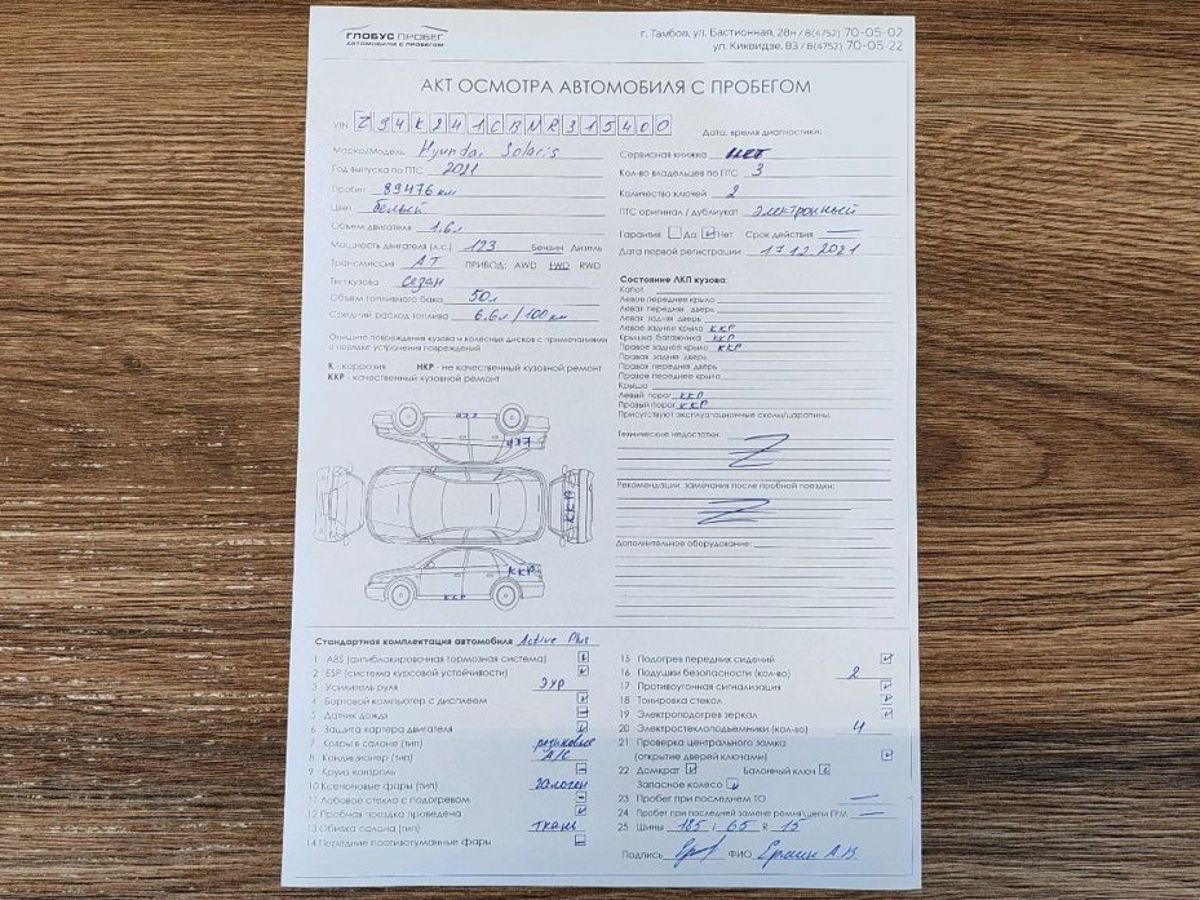 ГЛОБУС ПРОБЕГ
АВТОМОБИЛИ С ПРОБЕГОМ
г. Тамбов, ул. Бастионная, 28н / 8(4752) 70-05-02
ул. Киквидзе, 83 / 8(4752) 70-05-22
АКТ ОСМОТРА АВТОМОБИЛЯ С ПРОБЕГОМ
VIN Z94K241CBMR315400
Дата, время диагностики:
Марка/Модель Hyundai Solaris
Год выпуска по ПТС 2021
Пробег 89476 км
Цвет белый
Объем двигателя 1.6л
Мощность двигателя (л.с.) 123 Бензин Дизель
Трансмиссия AT ПРИВОД: AWD FWD RWD
Тип кузова Седан
Объем топливного бака 50л
Средний расход топлива 6.6л/100км
Опишите повреждения кузова и колесных дисков с примечаниями
о порядке устранения повреждений
К - коррозия НКР - не качественный кузовной ремонт
ККР - качественный кузовной ремонт
Сервисная книжка нет
Кол-во владельцев по ПТС 3
Количество ключей 2
ПТС оригинал / дубликат электронный
Гарантия Да Нет Срок действия —
Дата первой регистрации 17.12.2021
Состояние ЛКП кузова:
Капот
Левое переднее крыло
Левая передняя дверь
Левая задняя дверь
Левое заднее крыло ККР
Крышка багажника ККР
Правое заднее крыло ККР
Правая задняя дверь
Правая передняя дверь
Правое переднее крыло
Крыша
Левый порог ККР
Правый порог ККР
Присутствуют эксплуатационные сколы/царапины.
Технические недостатки:
Z
Рекомендации, замечания после пробной поездки:
Z
Дополнительное оборудование:
ККР
ККР
ККР
ККР
ККР
Стандартная комплектация автомобиля Active Plus
1 ABS (антиблокировочная тормозная система)
2 ESP (система курсовой устойчивости)
3 Усилитель руля ЭУР
4 Бортовой компьютер с дисплеем
5 Датчик дождя
6 Защита картера двигателя
7 Ковры в салоне (тип) резиновые
8 Кондиционер (тип) A/C
9 Круиз контроль
10 Ксеноновые фары (тип) галоген
11 Лобовое стекло с подогревом
12 Пробная поездка проведена
13 Обивка салона (тип) ткань
14 Передние противотуманные фары
15 Подогрев передних сидений
16 Подушки безопасности (кол-во) 2
17 Противоугонная сигнализация
18 Тонировка стекол
19 Электроподогрев зеркал
20 Электростеклоподъемники (кол-во) 4
21 Проверка центрального замка
(открытие дверей ключами)
22 Домкрат Балонный ключ
Запасное колесо
23 Пробег при последнем ТО —
24 Пробег при последней замене ремня\цепи ГРМ —
25 Шины 185 / 65 R 15
Подпись ФИО А.В.